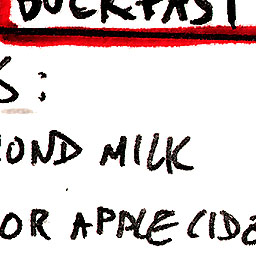 BUCKFAST
S:
OND MILK
OR APPLE CIDE